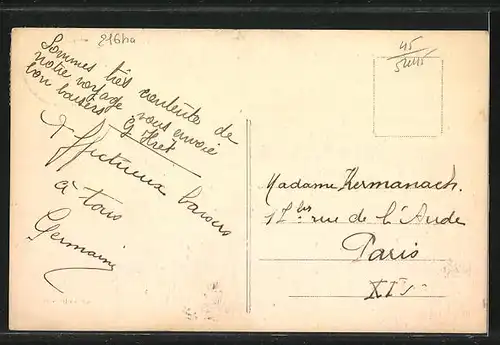 216ba
45
Sommes très contente de
notre voyage vous envoie
bon baisers
Affectueux baisers
à tous
Germaine
Madame Kermanach.
rue de l'Aude
Paris